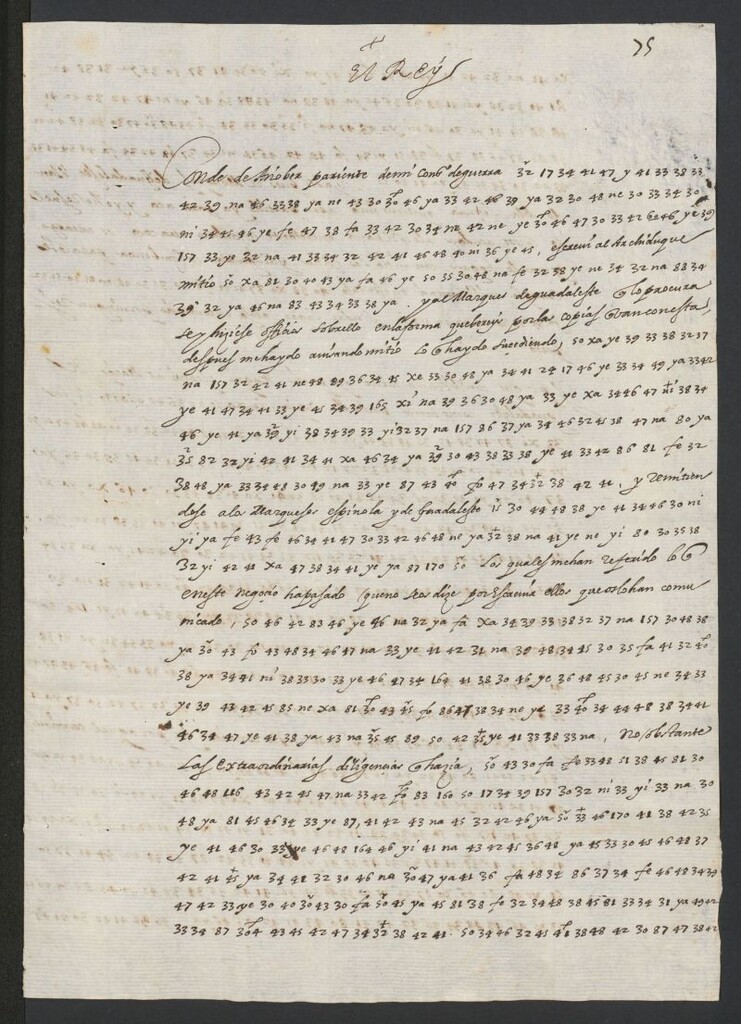 75
El Rey
Conde de Añober pariente de mi Consº de guerra 32 17 34 41 47 y 41 33 38 33
42 39 na 46 33 38 ya ne 43 30 30 46 ya 33 42 46 39 ya 32 30 48 ne 30 33 34 30
ni 34 45 46 ye fe 47 38 fa 33 42 30 34 ne 42 ne ye 30 46 47 30 33 42 ye 39
157 33 ye 32 na 41 33 34 32 42 41 46 48 40 ni 36 ye 45, escrevi al Archiduque
mi tio 50 xa 81 30 40 43 ya fa 46 ye 50 35 30 48 na fe 32 38 ye ne 34 32 na 88 34
39 32 ya 46 na 83 43 34 33 38 ya . y al Marques de guadaleste lo procura
se y hiçiese offiçios sobrello en la forma que vereys por las copias van con esta,
despues me ha ydo avisando mi tio lo ha ydo suçediendo, 50 xa ye 39 33 38 32 37
na 157 32 42 41 ne 48 89 36 34 45 xe 33 30 48 ya 34 41 24 17 46 ye 33 34 49 ya 33 42
ye 41 47 34 41 33 ye 45 34 39 165 xi na 39 36 30 48 ya 33 ye xa 34 46 47 ni 38 34
46 ye 41 ya 39 yi 38 34 39 33 yi 32 37 na 157 86 37 ya 34 46 32 45 38 47 na 80 ya
35 82 32 yi 42 41 34 41 xa 46 34 ya 39 30 43 38 33 38 ye 41 33 42 86 81 fe 32
38 48 ya 33 34 48 30 49 na 33 ye 87 43 40 fo 47 34 32 38 42 41. y remitien
dose a los Marqueses espinola y de Guadaleste 15 30 44 48 38 ye 41 34 46 30 ni
yi ya fe 43 fe 46 34 41 47 30 33 42 46 48 ne ya 32 38 na 41 ye ne yi 80 30 35 38
32 yi 42 41 xa 47 38 34 41 ye ya 87 170 50 los quales me han referido lo
en este negoçio ha pasado que no se os dize por escrivir ellos que os lo han comu
nicado, 50 46 42 83 46 ye 46 na 32 ya fa xa 34 39 33 38 32 37 na 157 30 48 38
ya 30 43 fo 43 48 34 46 47 na 33 ye 41 42 31 na 39 48 34 45 30 35 fa 41 32 40
38 ya 34 41 ni 38 33 30 33 ye 46 47 34 164 41 38 30 46 ye 36 48 45 30 45 ne 34 33
ye 39 43 42 45 85 ne xa 81 30 43 45 fo 86 47 38 34 ne ye 33 40 34 44 48 38 34 41
46 34 47 ye 41 38 ya 43 na 35 45 89 50 42 35 ye 41 33 38 33 na, No obstante
las extraordinarias diligencias hazia, 50 43 30 fa fe 33 48 51 38 45 81 30
46 48 116 43 42 45 47 na 33 42 fo 83 160 50 17 34 39 157 30 32 ni 33 yi 33 na 30
48 ya 81 45 46 34 33 ye 87, 41 42 43 na 45 32 42 46 ya 50 33 46 170 41 38 42 35
ye 41 46 30 33 ye 46 48 164 46 yi 41 na 43 42 45 36 48 ya 45 33 30 45 46 48 37
42 41 45 ya 34 41 32 30 46 na 30 47 ya 41 36 fa 48 34 86 37 34 fe 46 48 34 39
47 42 33 ye 30 40 30 43 30 fa 50 45 ya 45 81 38 fo 32 34 48 38 45 81 33 34 31 ya 49 42
33 34 87 30 4 43 45 42 47 34 32 38 42 41. 50 34 46 32 45 41 38 48 42 30 87 47 38 42